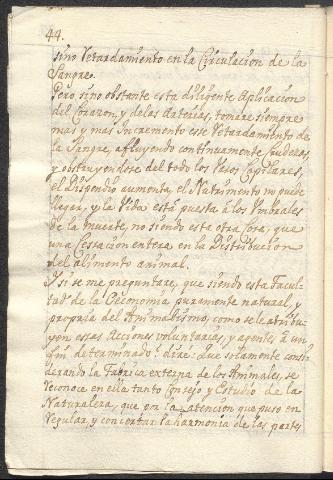 44.
sino Retardamiento en la Circulacion de la
Sangre.
Pero sino obstante esta diligente Aplicacion
del Corazon, y de las Arterias, tomare siempre
mas y mas Incremento este Retardamiento de
la Sangre, afluyendo continuamente Crudezas,
y obstruyendose del todo los Vasos Capilares,
el Dispendio aumenta, el Nutrimento no puede
llegar, y la Vida está puesta á los Umbrales
de la Muerte, no siendo esta otra Cosa, que
una Cesacion entera en la Distribucion
del alimento animal.
Y si se me preguntare, que siendo esta Facul-
tad de la Oeconomia puramente natural, y
propria del Animalismo, como se le atribu-
yen essas Acciones voluntarias, y agentes á un
fin determinado: dire: Que solamente consi-
derando la Fabrica externa de los Animales, se
reconoce en ella tanto Consejo y Estudio de la
Naturaleza, que por la atencion que puso en
Regular, y concertar la harmonia de las partes